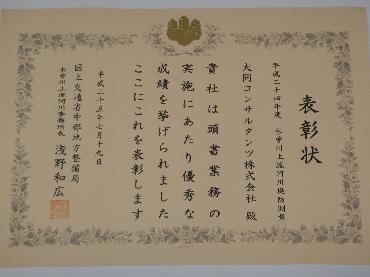 表彰状
平成二十四年度 木曽川上流河川堤防測量
大同コンサルタンツ株式会社 殿
貴社は頭書業務の
実施にあたり優秀な
成績を挙げられました
ここにこれを表彰します
平成二十五年七月十九日
国土交通省中部地方整備局
木曽川上流河川事務所長 浅野和広